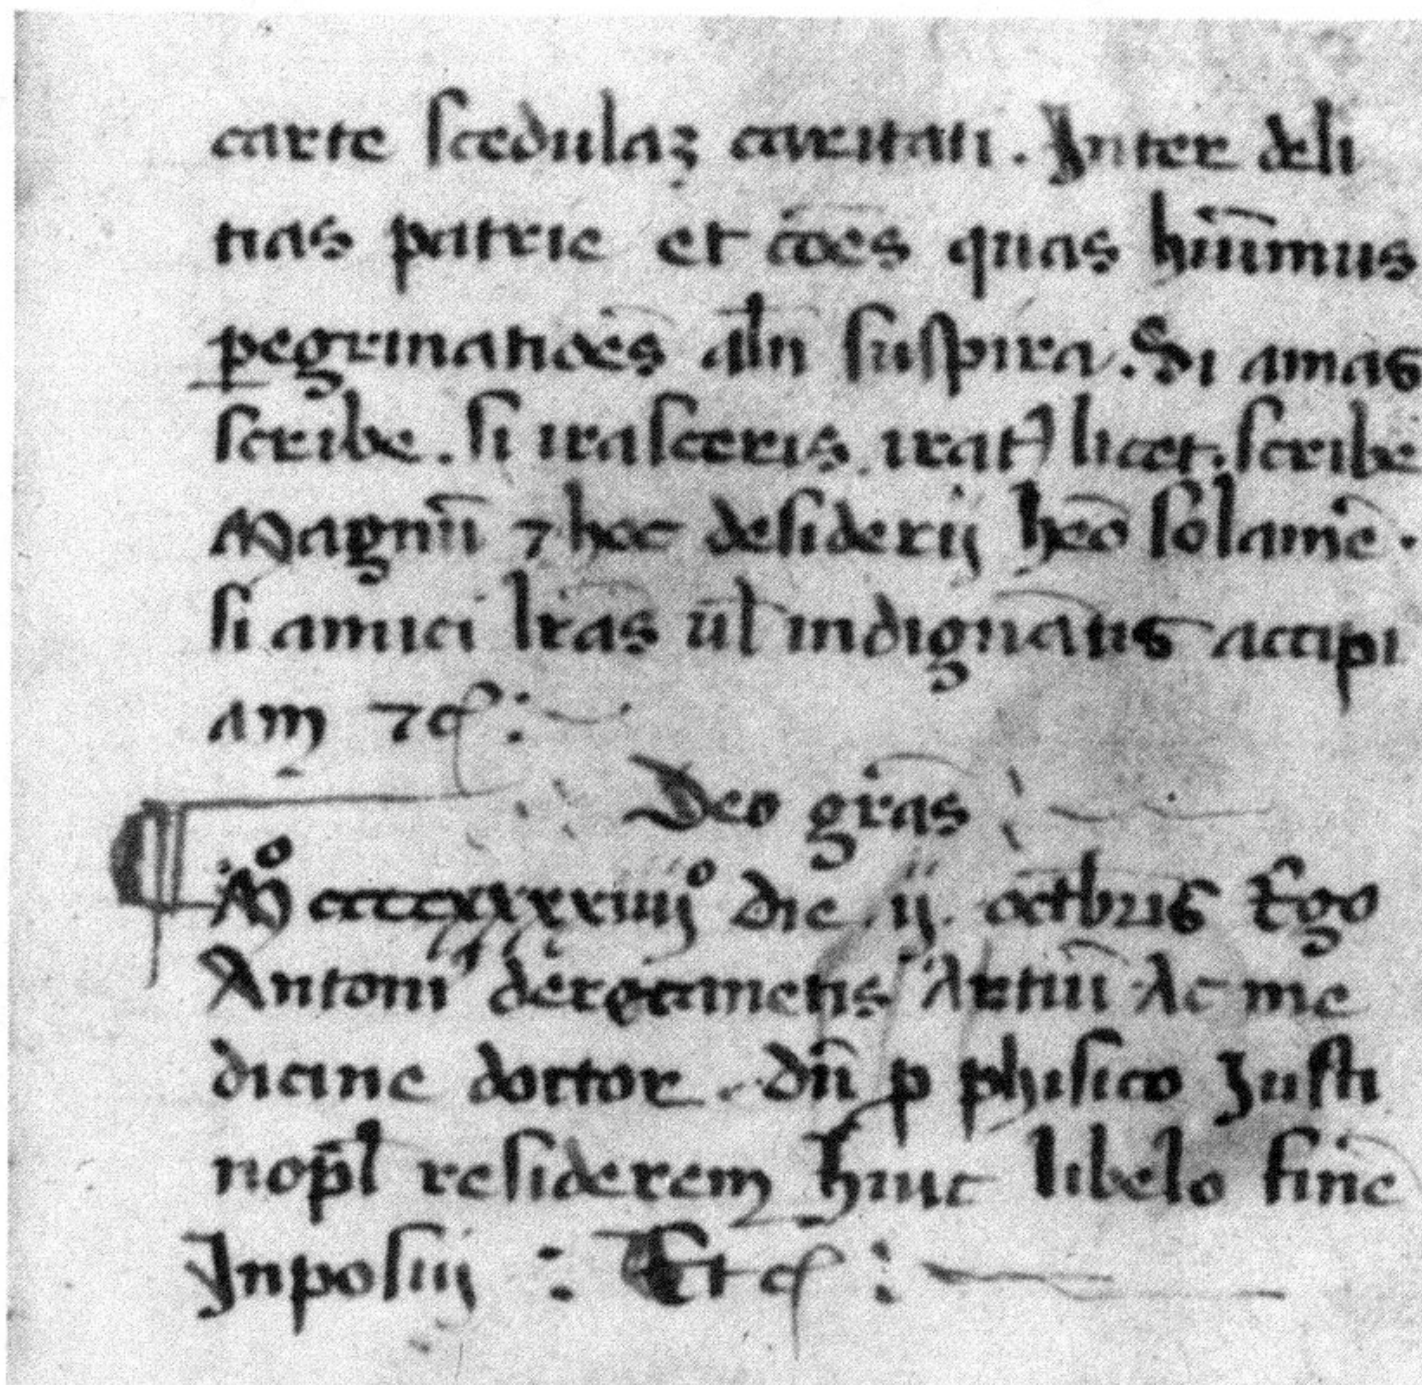 carte scedulaꝫ caritati. Inter deli
tias patrie et cōēs quas hūimus
ꝑegrinatiōēs alīn suspira. Si amas
scribe. si irasceris iratꝰ licet. scribe
Magnū ⁊ hoc desiderij hēo solamē.
si amici lr̄as ūl indignātis accipi
am ⁊c̄:
Deo gr̄as:
Mº ccccxxxxiiijº die ij. octbris Ego
Antoniꝰ artiū Ac me
dicine doctor. dn̄ p phisico Justi
nop̄l residerem huic libelo finē
Inposui: Et c̄: